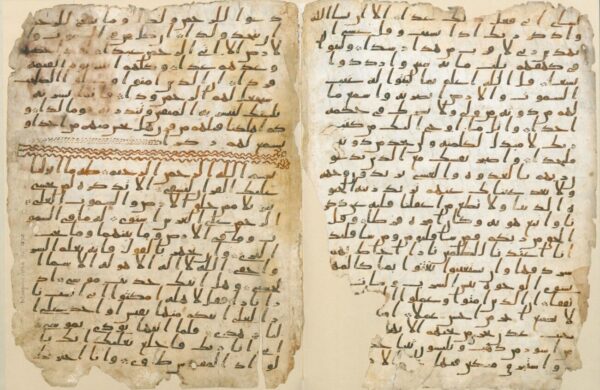 اني فعل ذلك غدا الا ان يشا الله
واذكر ربك اذا نسيت وقل عسى ان
يهدين ربي لاقرب من هذا رشدا ولبثوا
في كهفهم ثلث مايه سنين وازدادوا
تسعا قل الله اعلم بما لبثوا له غيب
السموت والارض ابصر به واسمع ما
لهم من دونه من ولي ولا يشرك في حكمه
احدا واتل ما اوحي اليك من كتب
ربك لا مبدل لكلمته ولن تجد من دونه
ملتحدا واصبر نفسك مع الذين يدعون
ربهم بالغدوه والعشي يريدون وجهه
ولا تعد عينك عنهم تريد زينه الحيوه
الدنيا ولا تطع من اغفلنا قلبه عن ذكر
نا واتبع هويه وكان امره فرطا وقل
الحق من ربكم فمن شا فليومن ومن شا فليكفر
انا اعتدنا للظلمين نارا احاط بهم
سردقها وان يستغيثوا يغثوا بما كالمهل
يشوي الوجوه بيس الشرب وسات
مرتفقا ان الذين امنوا وعملوا
لا نضيع اجر من احسن عملا
جنت عدن تجري من تحتهم الانهر
من اسور من ذهب ويلبسون ثيابا
واستبرق متكين فيها على الار
دعوا للرحمن ولدا وما ينبغي للرحمن
ان يتخذ ولدا ان كل من في السموت و
الارض الا اتي الرحمن عبدا لقد احصيهم
وعدهم عدا وكلهم اتيه يوم القيمه
فردا ان الذين امنوا وعملوا الصلحت
سيجعل لهم الرحمن ودا فانما يسرنه
بلسنك لتبشر به المتقين وتنذر به قوما لدا و
كم اهلكنا قبلهم من قرن هل تحس منهم من احد او
تسمع لهم ركزا
بسم الله الرحمن الرحيم طه ما انزلنا
عليك القران لتشقى الا تذكره لمن يخشى
تنزيلا ممن خلق الارض والسموت العلى
الرحمن على العرش استوى له ما في السمو
ت وما في الارض وما بينهما وما تحت
الثرى وان تجهر بالقول فانه يعلم السر
واخفى الله لا اله الا هو له الاسما ا
لحسنى وهل اتيك حديث موسى اذ
را نارا فقل لاهله امكثوا اني انست نا
را لعلي اتيكم منها بقبس او اجد على ا
لنار هدى فلما اتيها نودي يموسى
اني انا ربك فاخلع نعليك انك با
لواد المقدس طوى وانا اخترتك